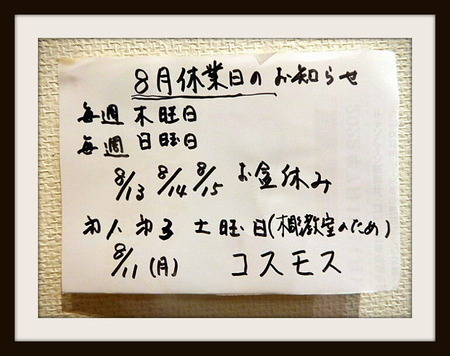 8月休業日のお知らせ
毎週 木曜日
毎週 日曜日
8/13 8/14 8/15 お盆休み
才1、才3 土曜日(
教室のため)
8/11(月) コスモス